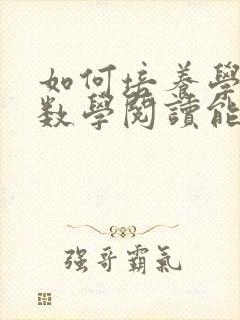 如何培養學
數學閱讀能
强哥霸氣